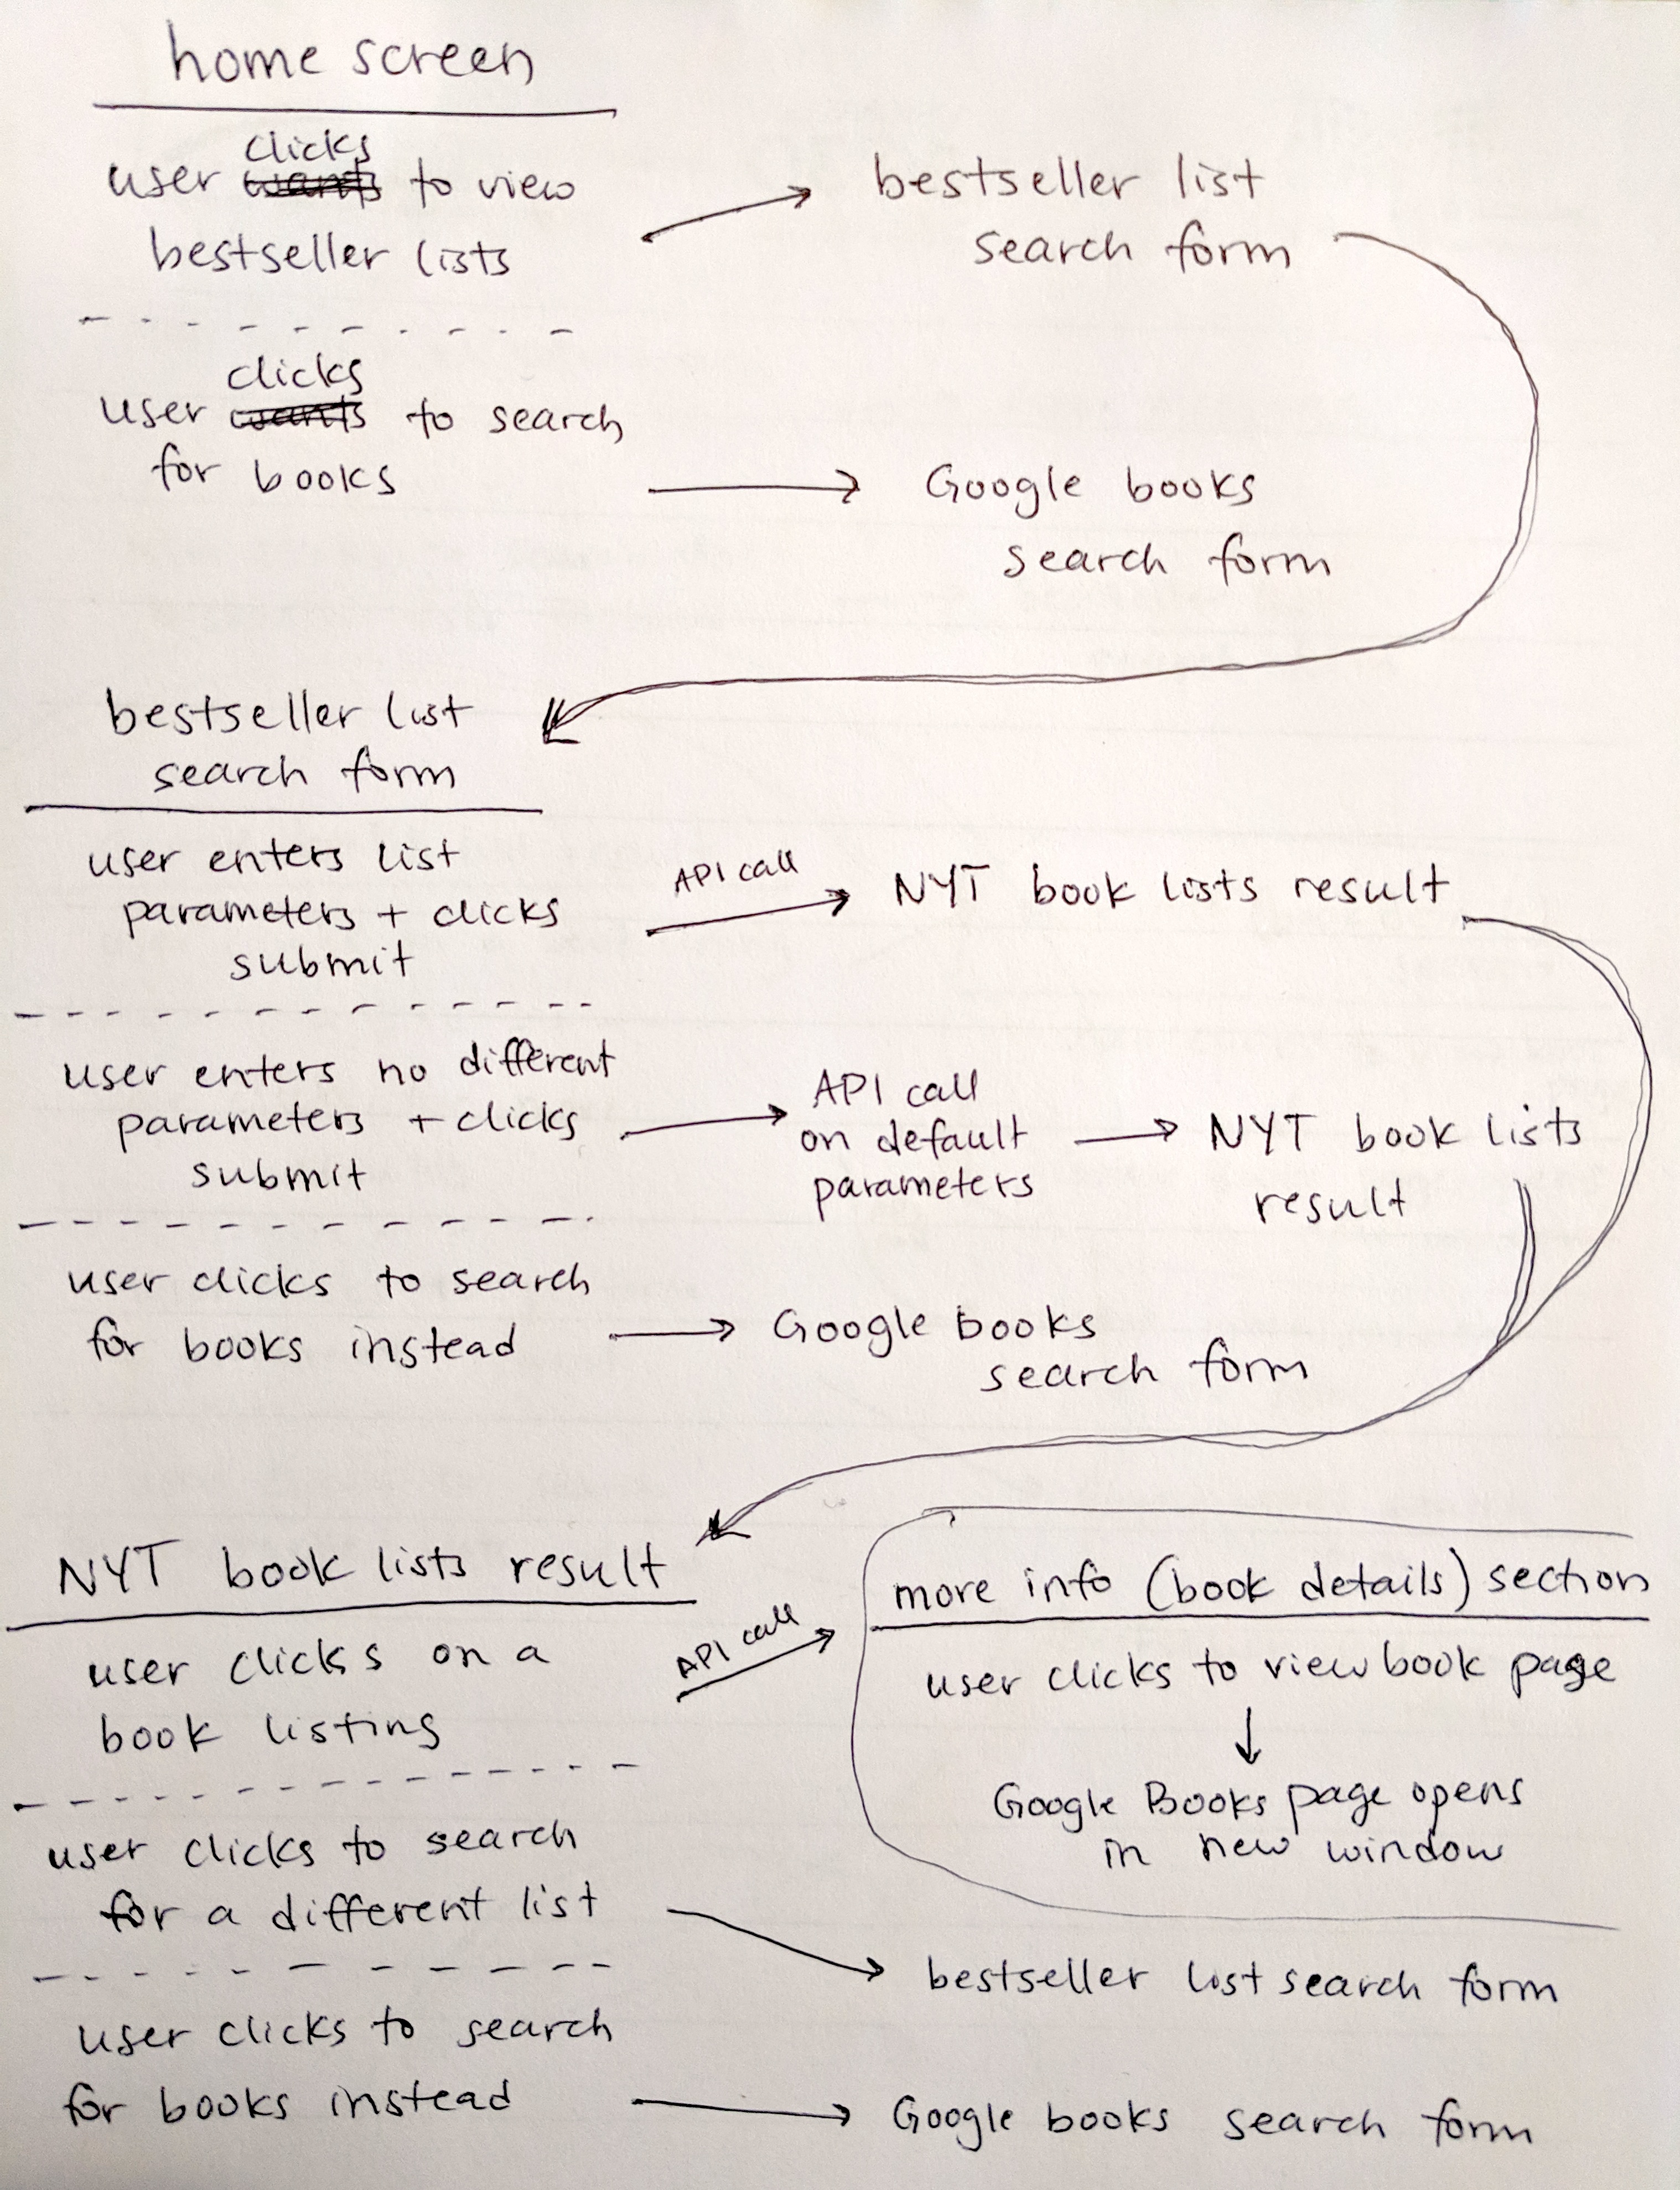 home screen
clicks
user wants to view
bestseller lists
bestseller list
search form
clicks
user wants to search
for books
Google books
search form
bestseller list
search form
user enters list
parameters + clicks
submit
API call
NYT book lists result
user enters no different
parameters + clicks
submit
API call
on default
parameters
NYT book lists
result
user clicks to search
for books instead
Google books
search form
NYT book lists result
user clicks on a
book listing
API call
more info (book details) section
user clicks to view book page
Google Books page opens
in new window
user clicks to search
for a different list
bestseller list search form
user clicks to search
for books instead
Google books search form